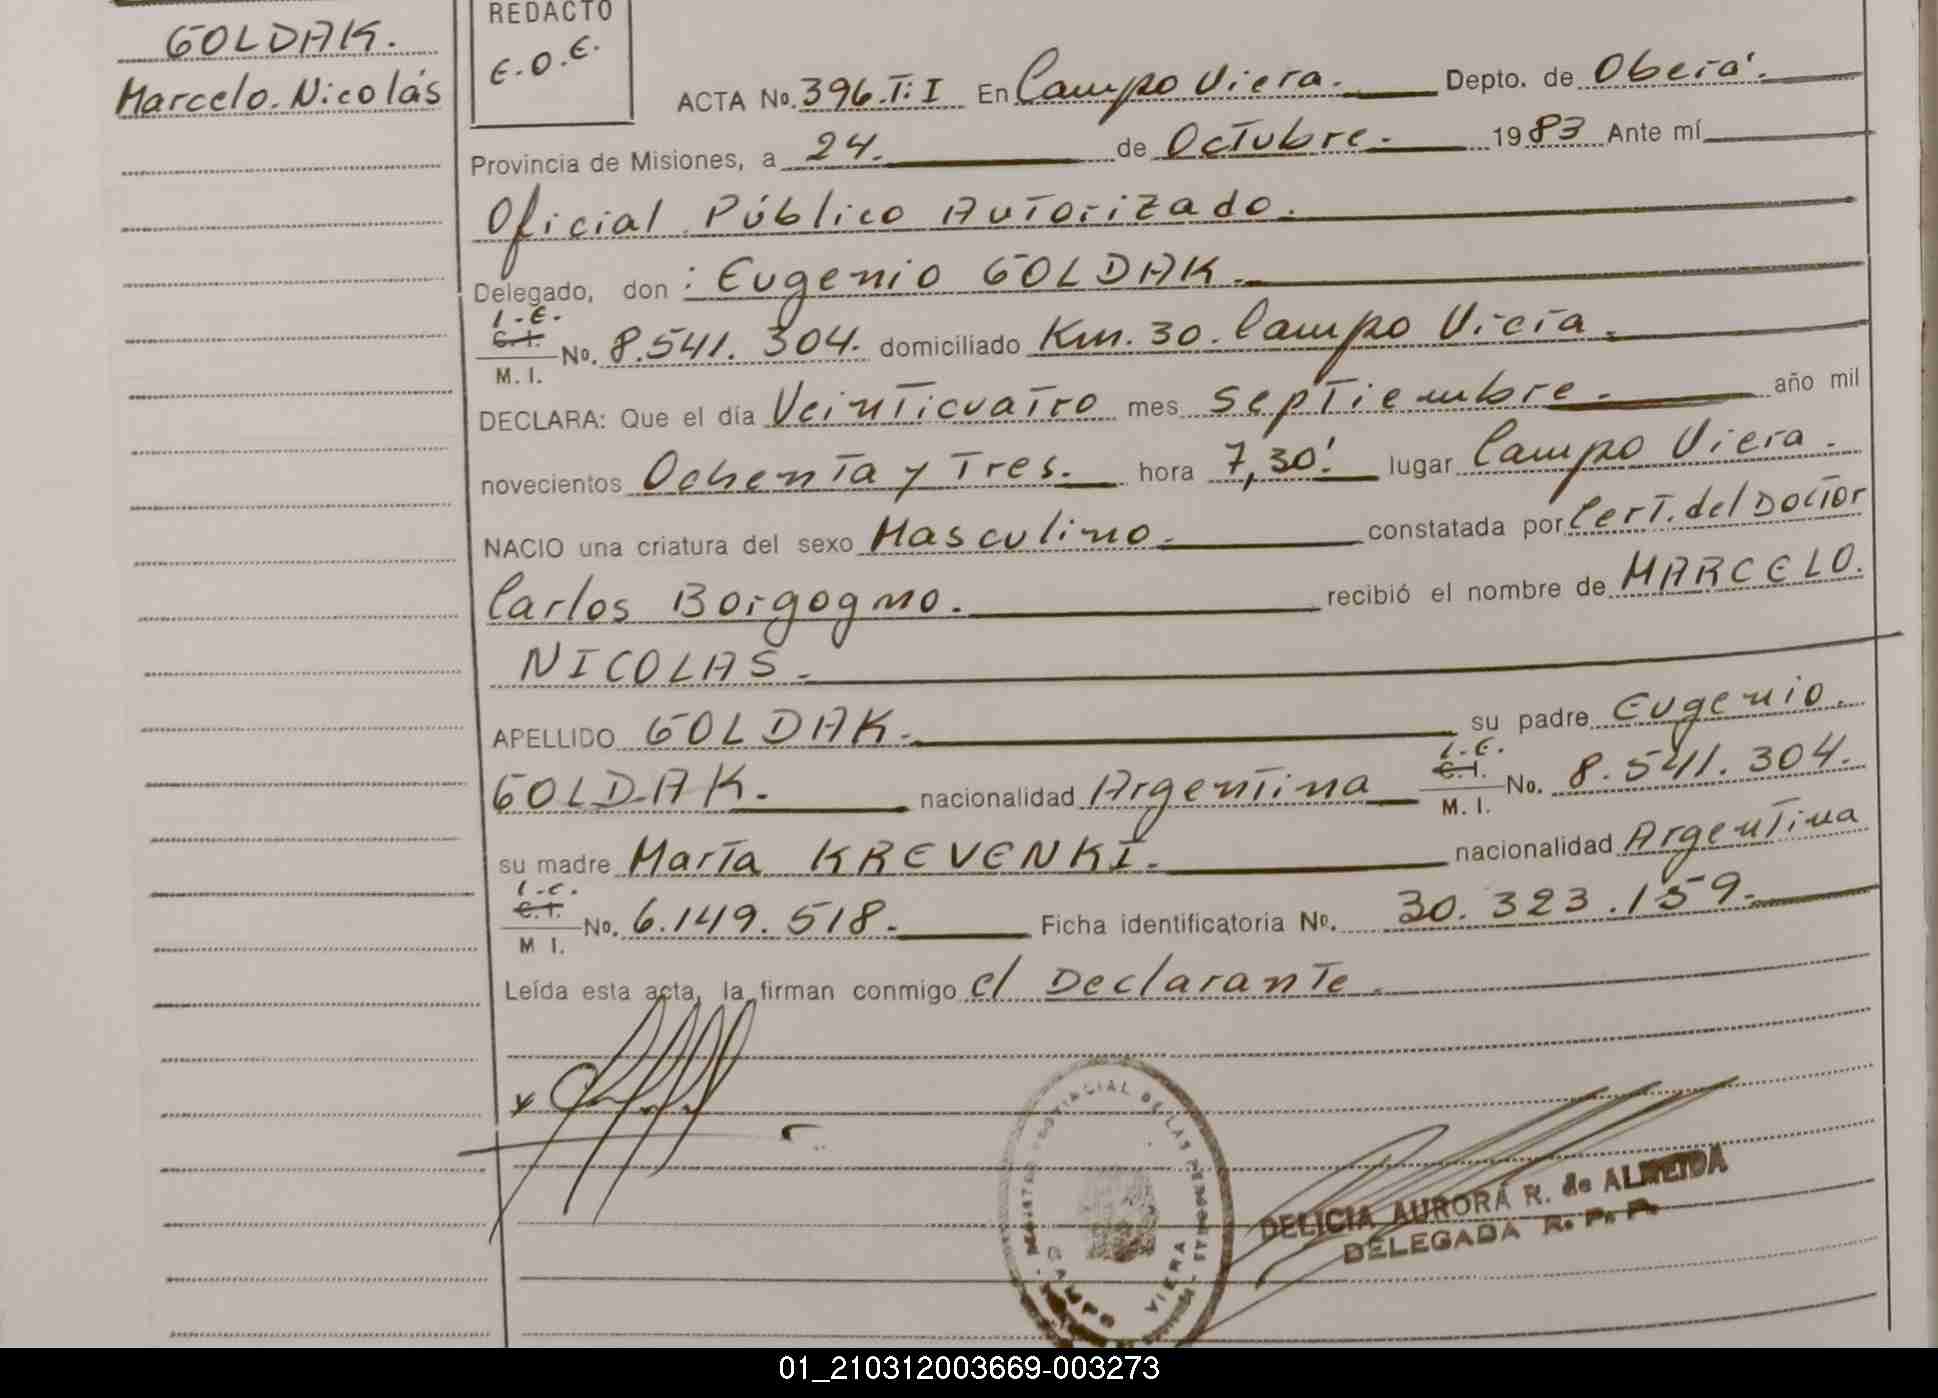 GOLDAK.
Marcelo. Nicolás
REDACTO
E.O.E.
ACTA No. 396.T:I En Campo Viera. Depto. de Oberá.
Provincia de Misiones, a 24. de Octubre. 1983 Ante mí
Oficial Público Autorizado.
Delegado, don : Eugenio GOLDAK.
L.E.
C.I.
M. I.
No. 8.541.304. domiciliado Km. 30. Campo Viera.
DECLARA: Que el día Veinticuatro mes Septiembre. año mil
novecientos Ochenta y Tres. hora 7,30' lugar Campo Viera.
NACIO una criatura del sexo Masculino. constatada por Cert. del Doctor
Carlos Borgogno. recibió el nombre de MARCELO.
NICOLAS.
APELLIDO GOLDAK. su padre Eugenio.
GOLDAK. nacionalidad Argentina L.E. C.I. M. I. No. 8.541.304.
su madre María KREVENKI. nacionalidad Argentina
L.E.
C.I.
M I.
No. 6.149.518. Ficha identificatoria No. 30.323.159.
Leída esta acta, la firman conmigo el Declarante.
PROVINCIAL DE LAS PERSONAS
CAMPO VIERA
DELICIA AURORA R. de ALMEIDA
DELEGADA R. P. P.
01_210312003669-003273